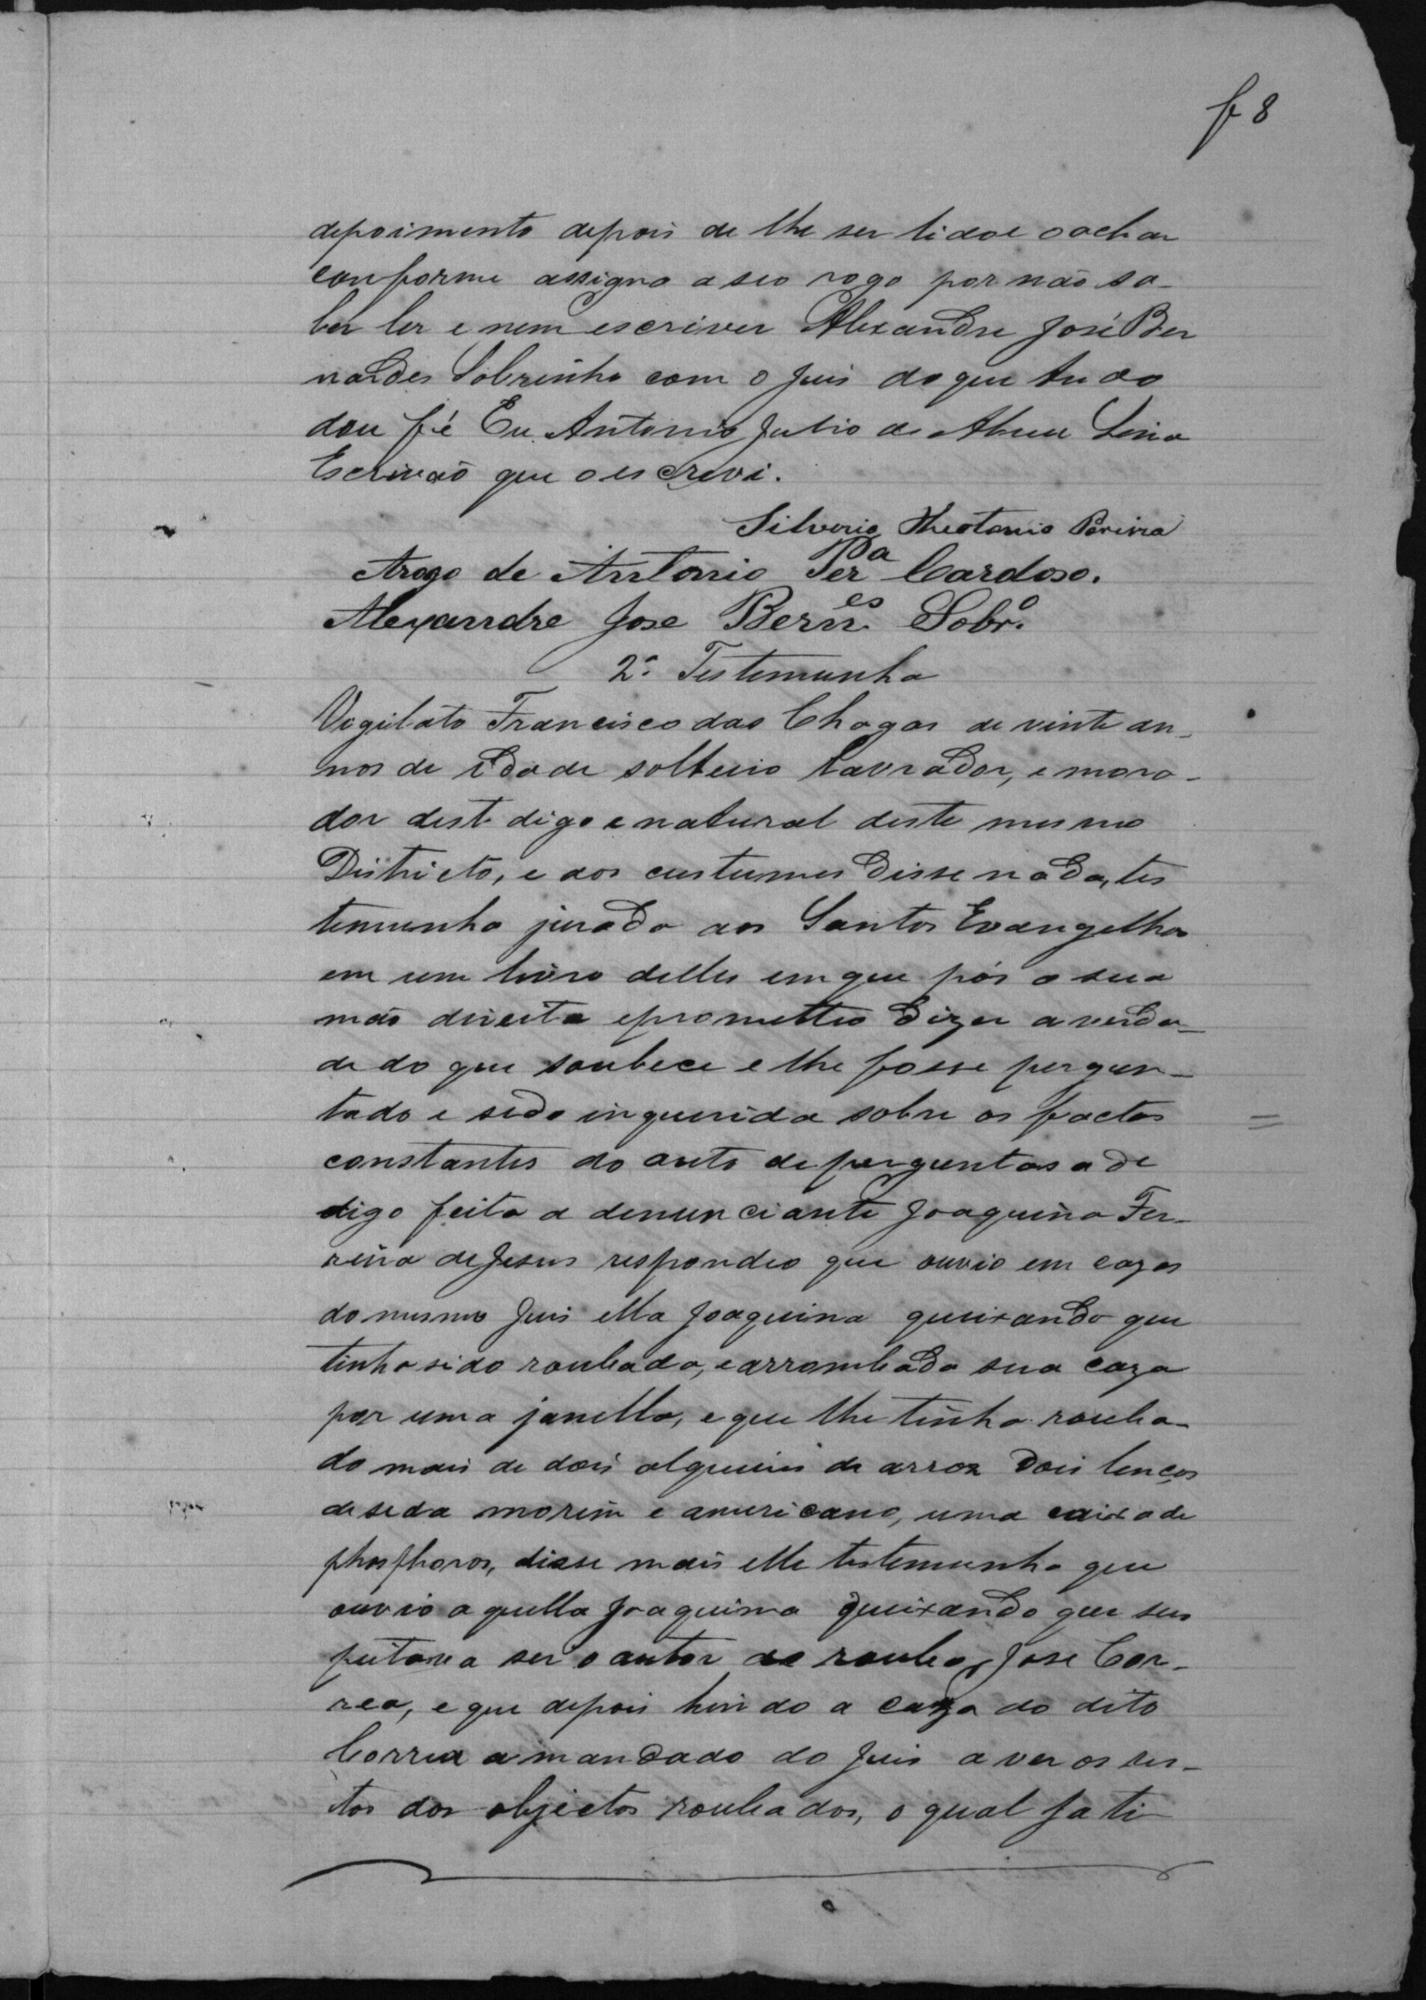 f 8
depoimento depois de lhe ser lido e o achar
conforme assigna a seo rogo por não sa-
ber ler e nem escriver Alexandre José Ber
nardes Sobrinho com o Juis do que tudo
dou fé Eu Antonio Julio de Abreu Lima
Escrivão que o escrevi.
Silverio Theotonio Pereira
Arogo de Antonio Perª Cardoso.
Alexandre Jose Bernes Sobrº.
2ª Testemunha
Vigilato Francisco das Chagas de vinte an-
nos de idade solteiro lavrador, e mora-
dor dest digo e natural deste mesmo
Districto, e aos custumes disse nada, tes
temunha jurada aos Santos Evangelhos
em um livro delles em que pós a sua
mão direita eprometteo dizer a verda-
de do que soubece e lhe fosse pergun-
tado e sedo inquerida sobre os factos
constantes do auto de perguntas a de
digo feita a denunciante Joaquina Fer-
reira de Jesus respondeo que ouvio em cazas
do mesmo Juis ella Joaquina queixando que
tinha sido roubada, e arrombada sua caza
por uma janella, e que lhe tinha rouba-
do mais de dois alqueires de arroz dois lenços
de seda morim e americano, uma caixa de
phosphoros, disse mais elle testemunha que
ouvio aquella Joaquina queixando que sus
peitava ser o autor do roubo, Jose Cor-
rea, e que depois hindo a caza do dito
Correa a mandado do Juis a ver os res-
tos dos objectos roubados, o qual ja ti